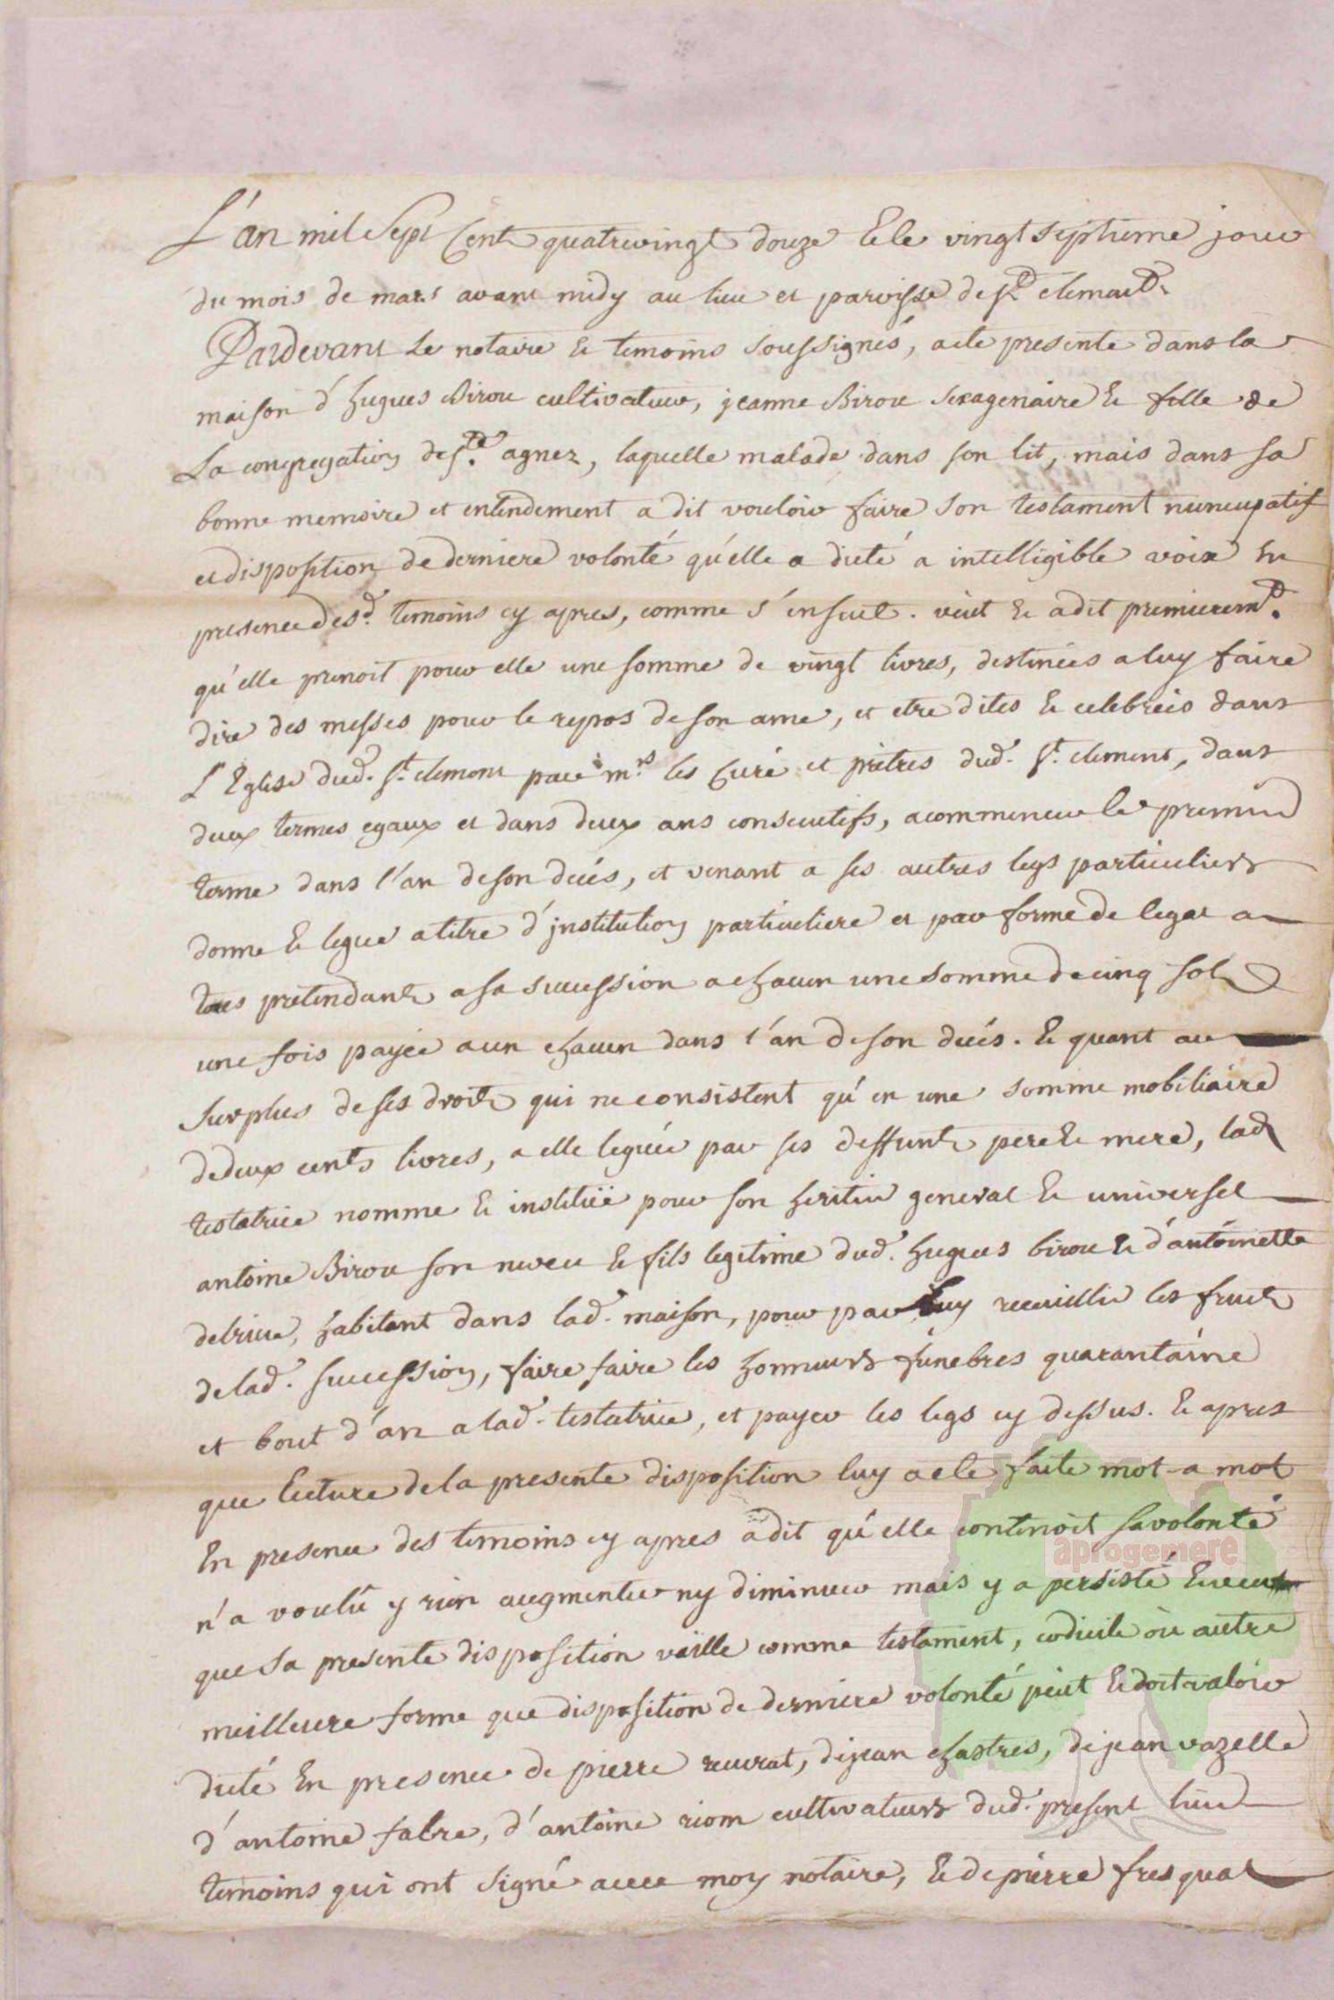 L'an mil Sept Cent quatrevingt douze & le vingt septieme jour
du mois de mars avant midy au lieu et parroisse de st clement
Pardevant Le notaire & temoins soussignés, a ete presente dans la
maison d'hugues Birou cultivateur, jeanne Birou sexagenaire & fille de
La congregation de ste agnez, laquelle malade dans son lit, mais dans sa
bonne memoire et entendement a dit vouloir faire son testament nuncupatif
et disposition de derniere volonté qu'elle a dicté a intelligible voix En
presence desd. temoins cy apres, comme s'ensuit. veut & a dit premieremt.
qu'elle prenoit pour elle une somme de vingt livres, destinées a luy faire
dire des messes pour le repos de son ame, et etre dites & celebreés dans
L'Eglise dud. st. clement par mrs les Curé et prêtres dud. st. clement, dans
deux termes egaux et dans deux ans consecutifs, a commencer le premier
terme dans l'an de son decés, et venant a ses autres legs particuliers
donne & legue a titre d'jnstitution particuliere et par forme de legat a
tous pretendants a sa succession a chacun une somme de cinq sols
une fois payée a un chacun dans l'an de son decés. & quant au
surplus de ses droits qui ne consistent qu'en une somme mobiliaire
de deux cents livres, a elle leguée par ses deffunts pere & mere, lad
testatrice nomme & instituë pour son heritier general & universel
antoine Birou son neveu & fils legitime dud. hugues birou & d'antoinette
delrieu, habitant dans lad. maison, pour par luy recueillir les fruits
de lad. succession, faire faire les honneurs funebres quarantaine
et bout d'an a lad. testatrice, et payer les legs cy dessus. & apres
que lecture de la presente disposition luy a ete faite mot a mot
En presence des temoins cy apres a dit qu'elle contenoit sa volonté
n'a voulû y rien augmenter ny diminuer mais y a persisté &
que sa presente disposition vaille comme testament, codicile ou autre
meilleure forme que disposition de derniere volonté peut & doit valoir
dicté En presence de pierre reuvrat, de jean chastres, de jean vazelle
d'antoine fabre, d'antoine riom cultivateurs dud. present lieu
temoins qui ont signé avec moy notaire, & de pierre fresquat
aprogemere